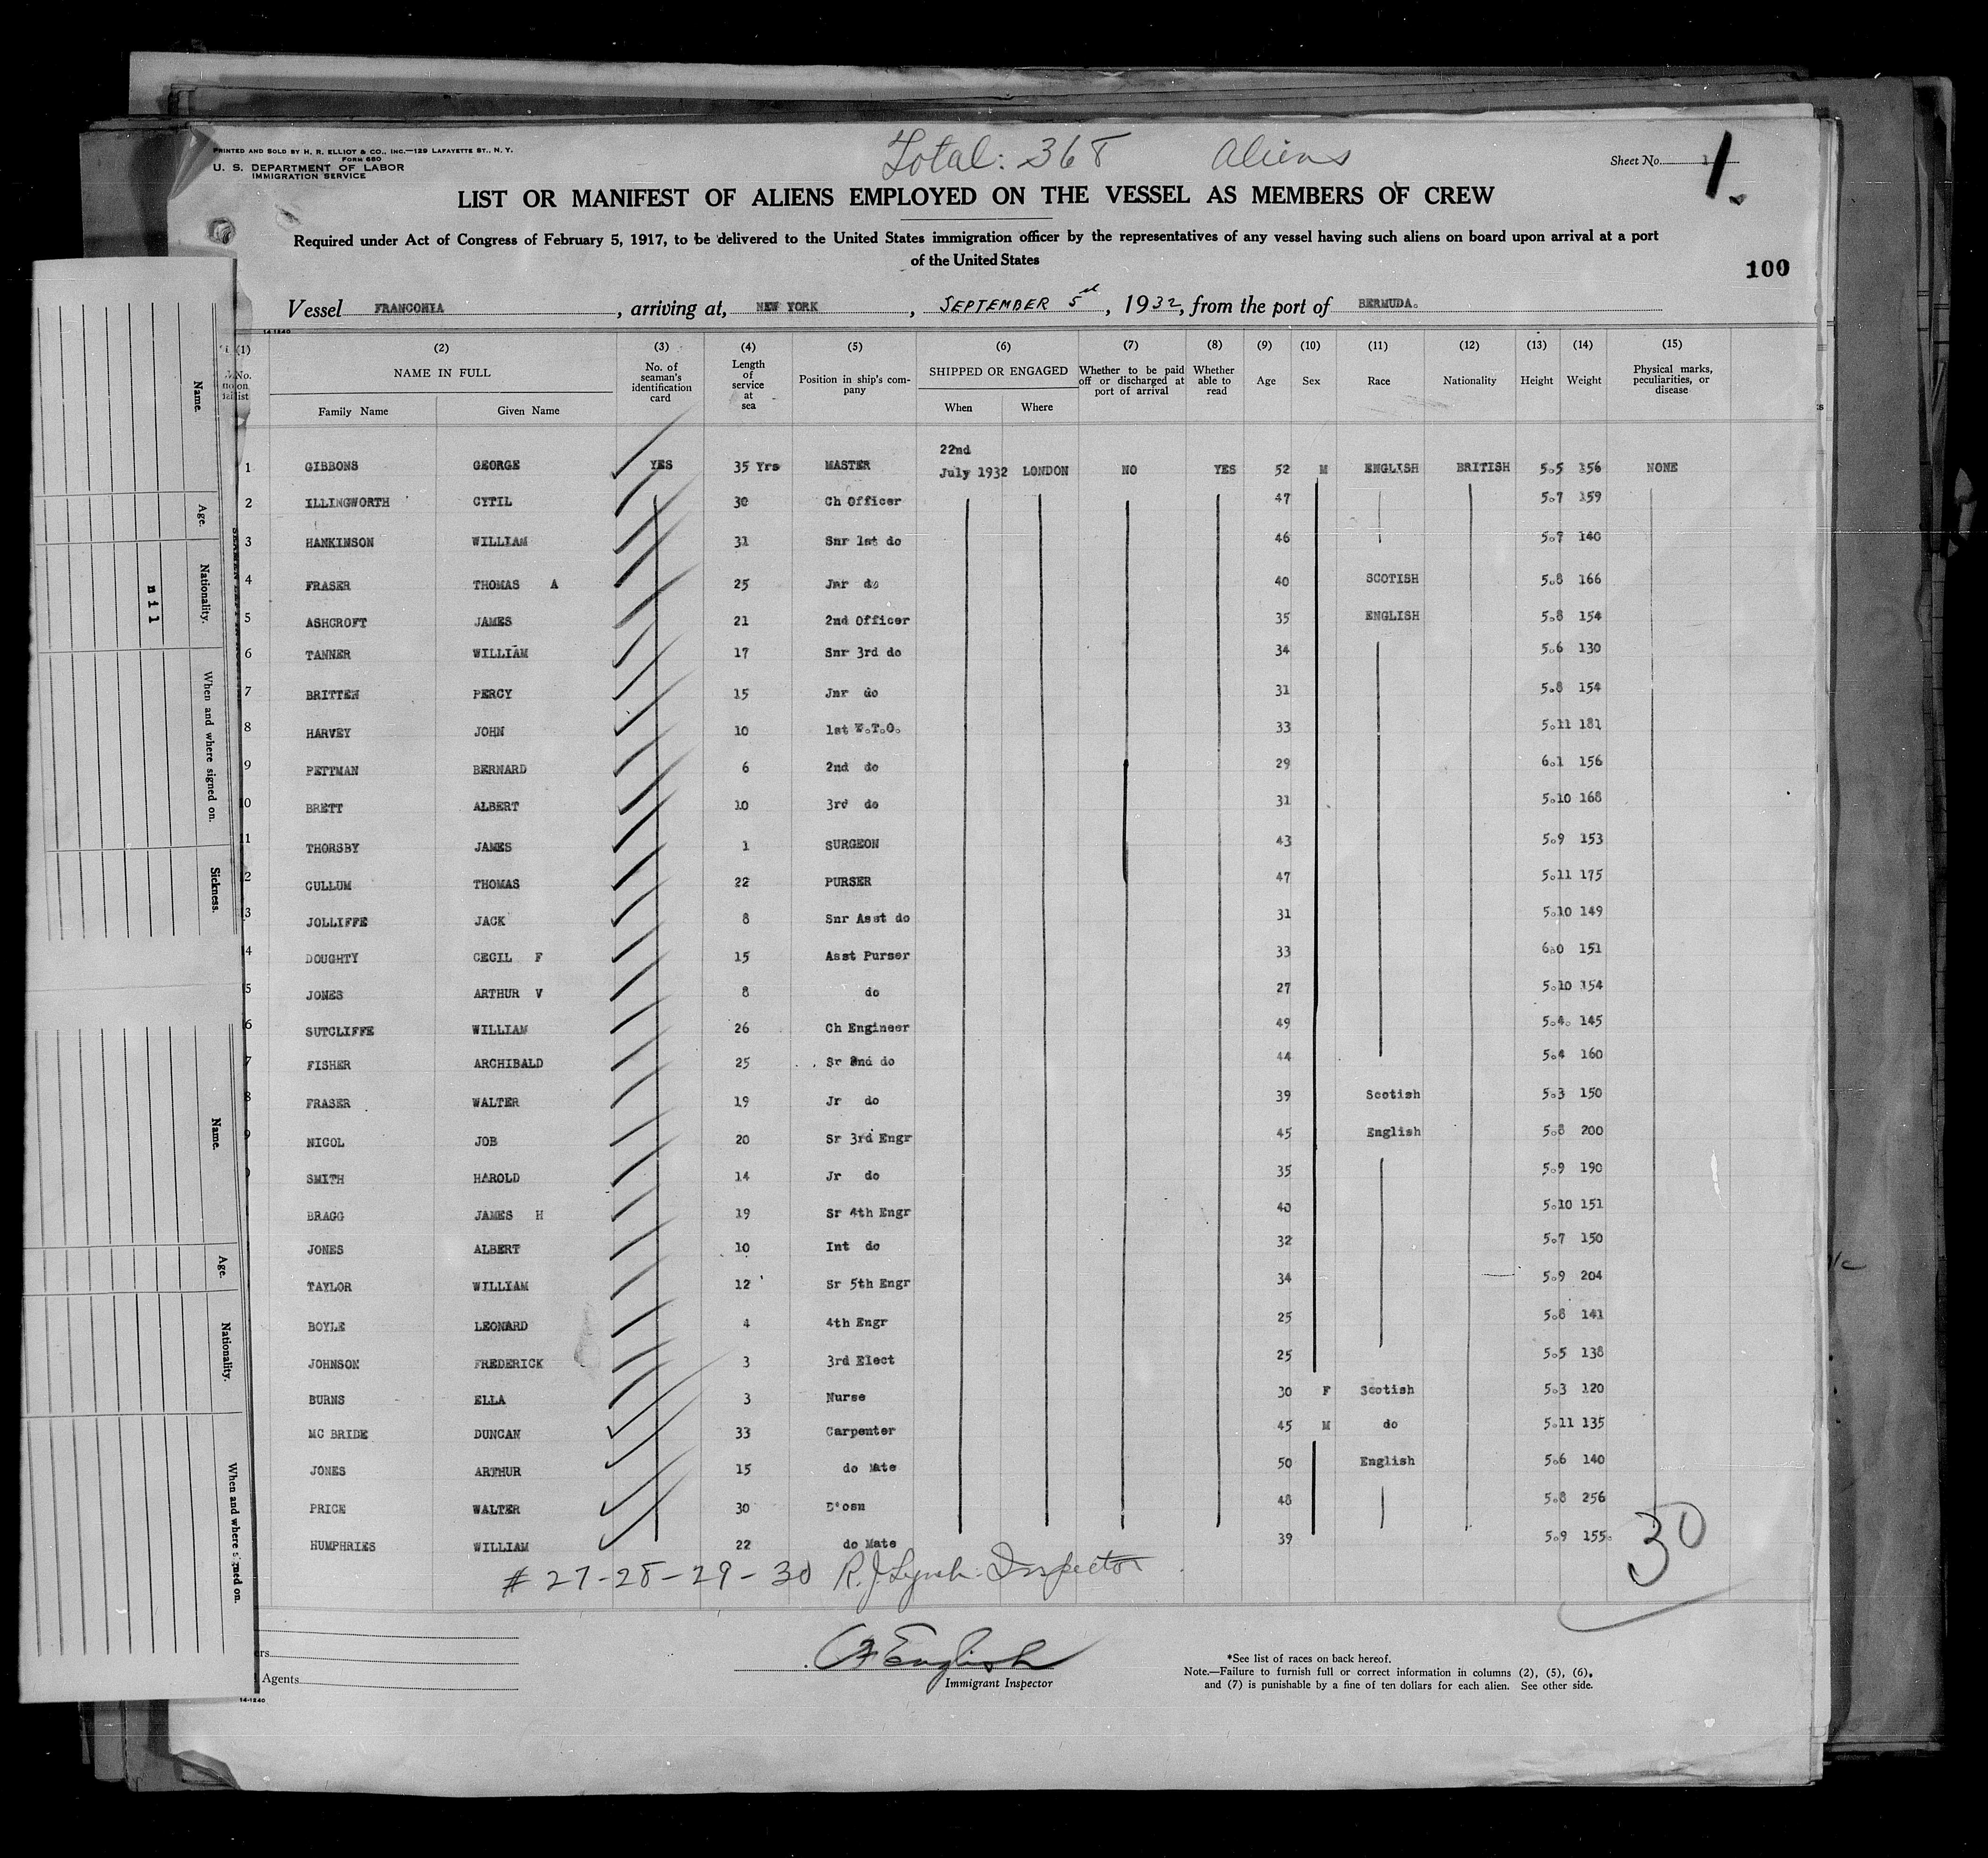 Total: 368 Aliens
PRINTED AND SOLD BY H. R. ELLIOT & CO., INC.—129 LAFAYETTE ST., N. Y.
FORM 680
U. S. DEPARTMENT OF LABOR
IMMIGRATION SERVICE
Sheet No. 1
1.
LIST OR MANIFEST OF ALIENS EMPLOYED ON THE VESSEL AS MEMBERS OF CREW
Required under Act of Congress of February 5, 1917, to be delivered to the United States immigration officer by the representatives of any vessel having such aliens on board upon arrival at a port
of the United States
100
Vessel FRANCONIA, arriving at, NEW YORK, SEPTEMBER 5, 1932, from the port of BERMUDA.
14-1240
(1) (2) (3) (4) (5) (6) (7) (8) (9) (10) (11) (12) (13) (14) (15)
No. on list NAME IN FULL Family Name Given Name No. of seaman's identification card Length of service at sea Position in ship's company SHIPPED OR ENGAGED When Where Whether to be paid off or discharged at port of arrival Whether able to read Age Sex Race Nationality Height Weight Physical marks, peculiarities, or disease
1 GIBBONS GEORGE YES 35 Yrs MASTER 22nd July 1932 LONDON NO YES 52 M ENGLISH BRITISH 5.5 156 NONE
2 ILLINGWORTH CYTIL 30 Ch Officer 47 5.7 159
3 HANKINSON WILLIAM 31 Snr 1st do 46 5.7 140
4 FRASER THOMAS A 25 Jnr do 40 SCOTISH 5.8 166
5 ASHCROFT JAMES 21 2nd Officer 35 ENGLISH 5.8 154
6 TANNER WILLIAM 17 Snr 3rd do 34 5.6 130
7 BRITTEN PERCY 15 Jnr do 31 5.8 154
8 HARVEY JOHN 10 1st W.T.O. 33 5.11 181
9 PETTMAN BERNARD 6 2nd do 29 6.1 156
10 BRETT ALBERT 10 3rd do 31 5.10 168
11 THORSBY JAMES 1 SURGEON 43 5.9 153
2 CULLUM THOMAS 22 PURSER 47 5.11 175
3 JOLLIFFE JACK 8 Snr Asst do 31 5.10 149
4 DOUGHTY CECIL F 15 Asst Purser 33 6.0 151
5 JONES ARTHUR V 8 do 27 5.10 154
6 SUTCLIFFE WILLIAM 26 Ch Engineer 49 5.4. 145
7 FISHER ARCHIBALD 25 Sr 2nd do 44 5.4 160
8 FRASER WALTER 19 Jr do 39 Scotish 5.3 150
9 NICOL JOB 20 Sr 3rd Engr 45 English 5.8 200
SMITH HAROLD 14 Jr do 35 5.9 190
BRAGG JAMES H 19 Sr 4th Engr 40 5.10 151
JONES ALBERT 10 Int do 32 5.7 150
TAYLOR WILLIAM 12 Sr 5th Engr 34 5.9 204
BOYLE LEONARD 4 4th Engr 25 5.8 141
JOHNSON FREDERICK 3 3rd Elect 25 5.5 138
BURNS ELLA 3 Nurse 30 F Scotish 5.3 120
MC BRIDE DUNCAN 33 Carpenter 45 M do 5.11 135
JONES ARTHUR 15 do Mate 50 English 5.6 140
PRICE WALTER 30 B'osn 48 5.8 256
HUMPHRIES WILLIAM 22 do Mate 39 5.9 155.
30
# 27-28-29-30 R.J. Lynch. Inspector
English
Immigrant Inspector
Agents
14-1240
*See list of races on back hereof.
Note.—Failure to furnish full or correct information in columns (2), (5), (6),
and (7) is punishable by a fine of ten dollars for each alien. See other side.
Name.
Age.
Nationality.
nil
When and where signed on.
Sickness.
Name.
Age.
Nationality.
When and where signed on.